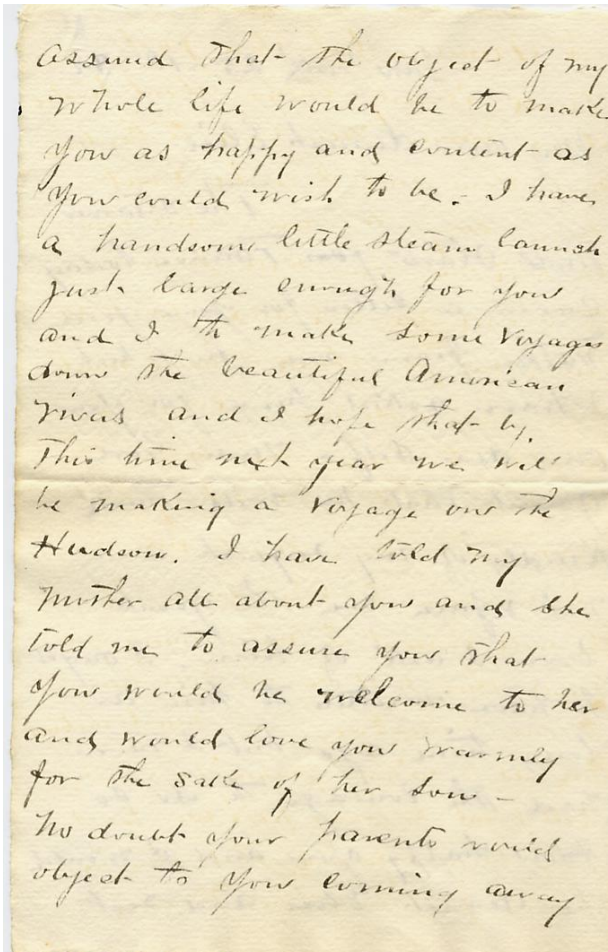 assured that the object of my
whole life would be to make
you as happy and content as
you could wish to be - I have
a handsome little steam launch
just large enough for you
and I to make some voyages
down the beautiful American
rivers and I hope that by
this time next year we will
be making a voyage on the
Hudson. I have told my
mother all about you and she
told me to assure you that
you would be welcome to her
and would love you warmly
for the sake of her son -
No doubt your parents would
object to you coming away